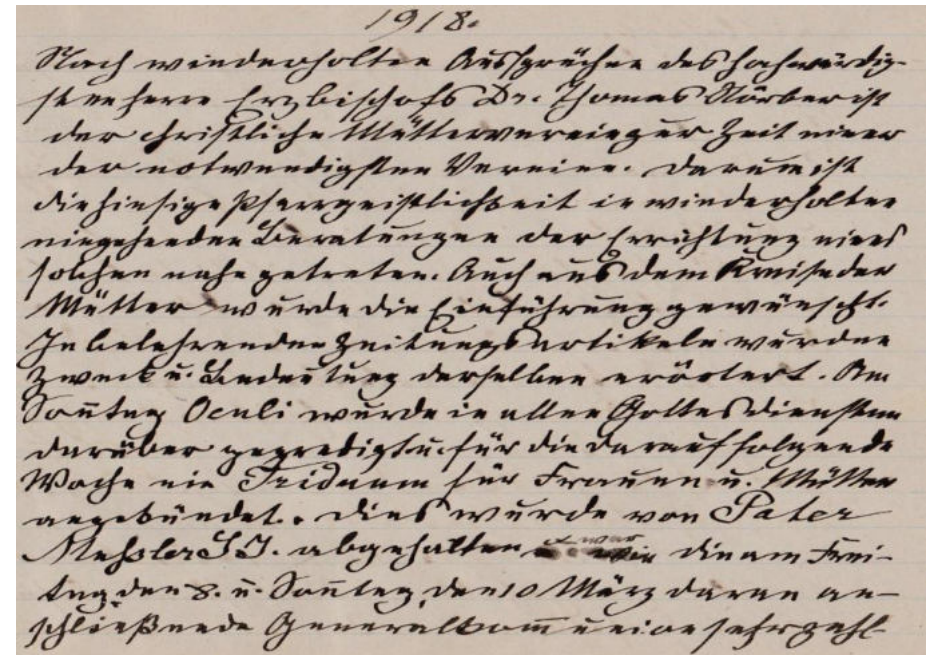 1918.
Nach wiederholten Aussprüchen des hochwürdig-
sten Herrn Erzbischofs Dr. Thomas Nörber ist
der christliche Mütterverein zur Zeit einer
der notwendigsten Vereine. Darum ist
die hiesige Pfarrgeistlichkeit in wiederholten
eingehenden Beratungen der Errichtung eines
solchen nahe getreten. Auch aus dem Kreise der
Mütter wurde die Einführung gewünscht.
In belehrenden Zeitungsartikeln wurden
Zweck u. Bedeutung derselben erörtert. Am
Sonntag Oculi wurde in allen Gottesdiensten
darüber gepredigt u. für die darauf folgende
Woche ein Triduum für Frauen u. Mütter
angekündet. Dies wurde von Pater
Meßler S.J. abgehalten war die am Frei-
tag, den 8. u. Sonntag, den 10 März daran an-
schließende Generalkommunion sehr zahl-